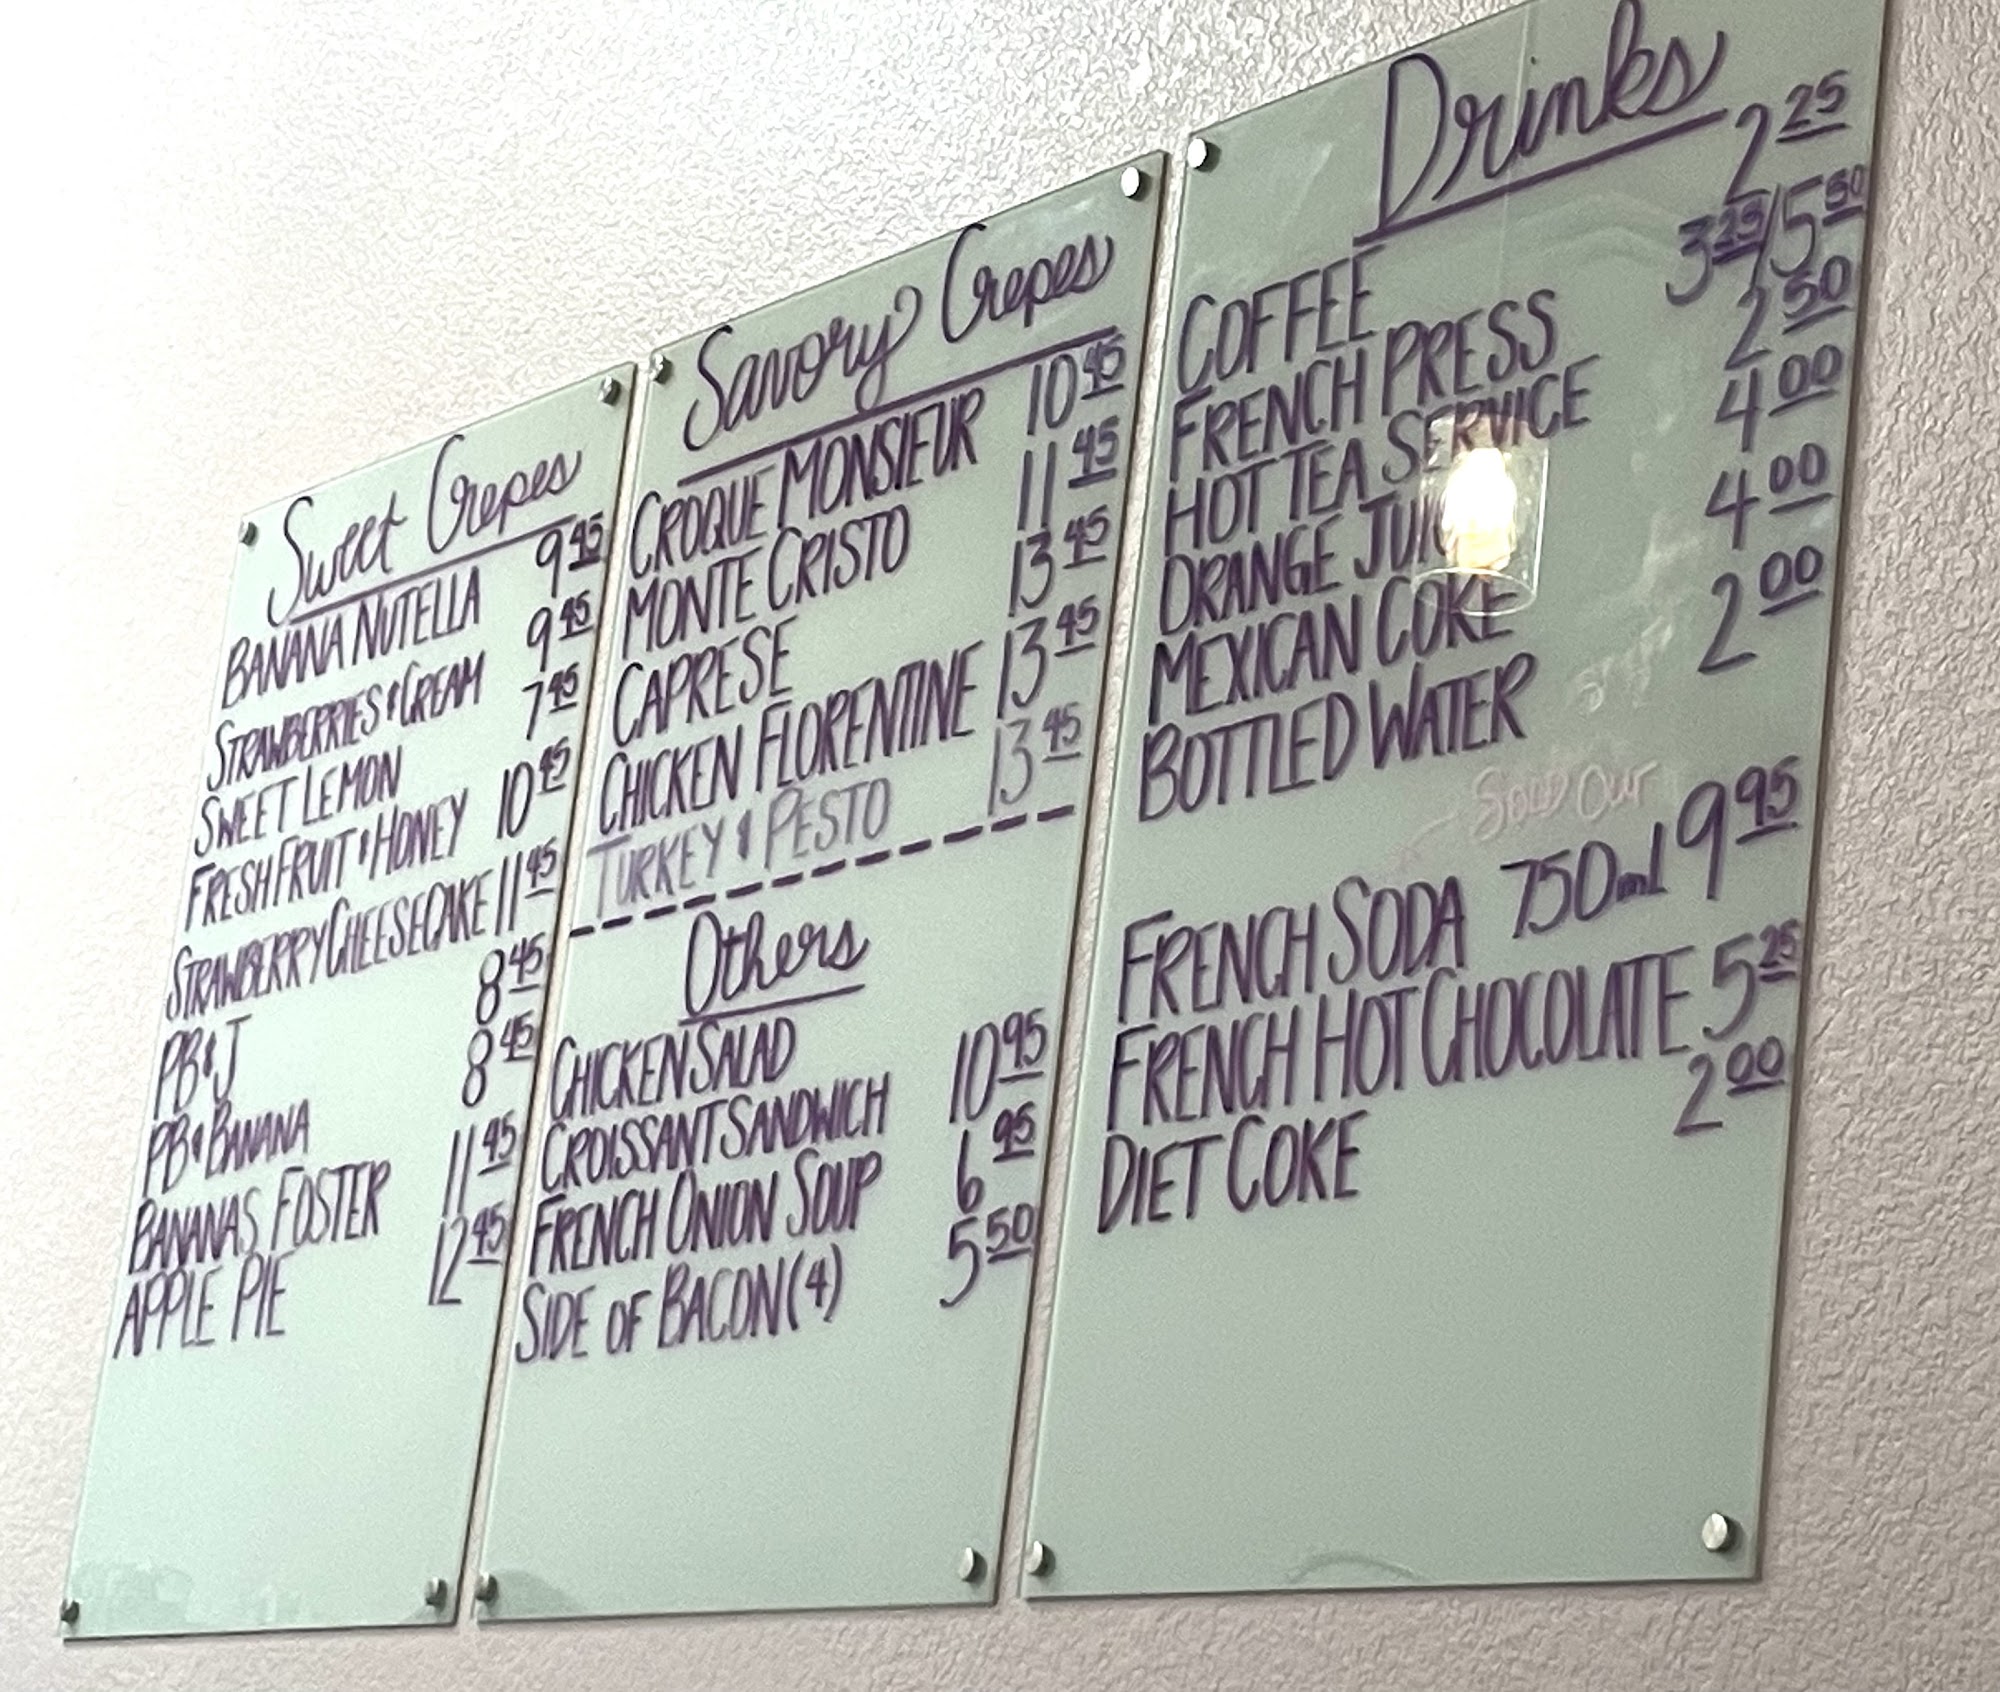 Sweet Crepes
BANANA NUTELLA 9.45
STRAWBERRIES & CREAM 9.45
SWEET LEMON 7.45
FRESH FRUIT & HONEY 10.45
STRAWBERRY CHEESECAKE 11.45
PB & J 8.45
PB & BANANA 8.45
BANANAS FOSTER 11.45
APPLE PIE 12.45
Savory Crepes
CROQUE MONSIEUR 10.45
MONTE CRISTO 11.45
CAPRESE 13.45
CHICKEN FLORENTINE 13.45
TURKEY & PESTO 13.45
Others
CHICKEN SALAD
CROISSANT SANDWICH 10.95
FRENCH ONION SOUP 6.95
SIDE OF BACON (4) 5.50
Drinks
COFFEE 2.25
FRENCH PRESS 3.25/5.50
HOT TEA SERVICE 2.50
ORANGE JUICE 4.00
MEXICAN COKE 4.00
BOTTLED WATER 2.00
SOLD OUT
FRENCH SODA 750ml 9.95
FRENCH HOT CHOCOLATE 5.25
DIET COKE 2.00